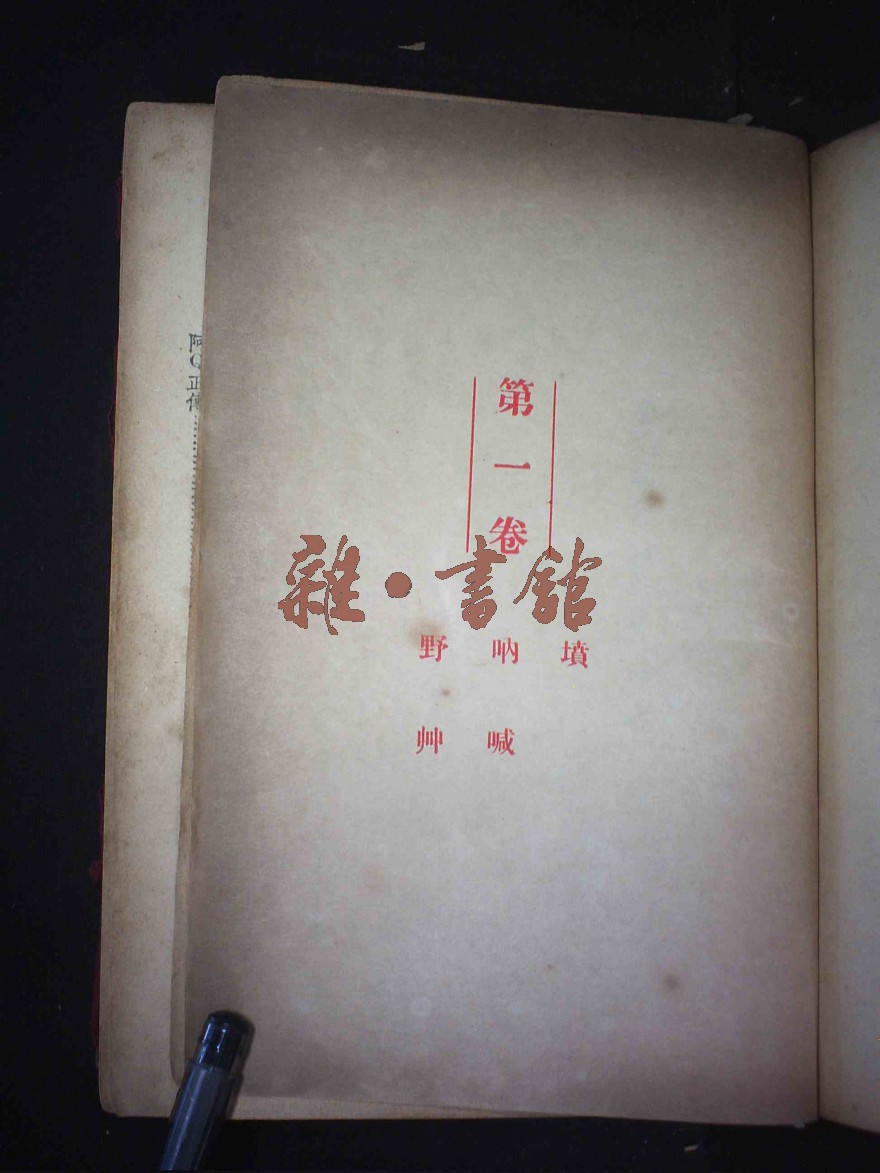 第一卷
墳
吶喊
野艸
雜·書館
阿Q正傳